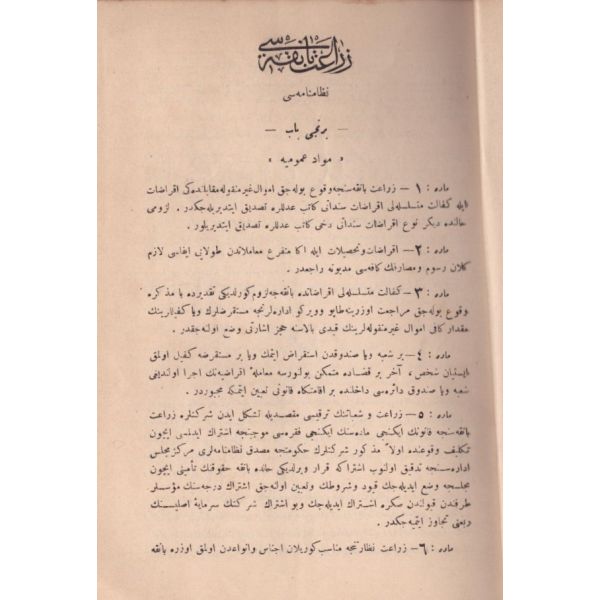 زراعت بانقه سی
نظامنامه سی
— برنجی باب —
« مواد عمومیه »
ماده : ١ – زراعت بانقه سنجه وقوع بوله جق اموال غیر منقوله مقابلنده کی اقراضات
ایله کفالت متسلسله لی اقراضات سنداتی کاتب عدللره تصدیق ایتدیریله جکدر . لزومی
حالنده دیگر نوع اقراضات سنداتی دخی کاتب عدللره تصدیق ایتدیریلور .
ماده : ٢ – اقراضات وتحصیلات ایله اکا متفرع معاملاتدن طولایی ایفاسی لازم
کلان رسوم و مصارفک کافه سی مدیونه راجعدر .
ماده : ٣ – کفالت متسلسله لی اقراضاتده بانقه جه لزوم کورلدیکی تقدیرده با مذکره
وقوع بوله جق مراجعت اوزرینه طاپو وویرکو اداره لرنجه مستقرضلرک ویا کفیللرینک
مقدار کافی اموال غیر منقوله لرینک قیدی بالاسنه حجز اشارتی وضع اولنه جقدر .
ماده : ٤ – بر شعبه ویا صندوقدن استقراض ایتمک ویا بر مستقرضه کفیل اولمق
ایستیان شخص ، آخر بر قضاده متمکن بولنورسه معامله اقراضیه نک اجرا اولندیغی
شعبه ویا صندوق دائره سی داخلنده بر اقامتکاه قانونی تعیین ایتمکه مجبوردر .
ماده : ٥ – زراعت و شعباتنک ترقیسی مقصدیله تشکل ایدن شرکتلره زراعت
بانقه سنجه قانونک ایکنجی ماده سنک ایکنجی فقره سی موجبنجه اشتراک ایدلمسی ایچون
تکلیف وقوعنده اولا مذکور شرکتلرک حکومتجه مصدق نظامنامه لری مرکز مجلس
اداره سنجه تدقیق اولنوب اشتراکه قرار ویرلدیکی حالده بانقه حقوقنک تأمینی ایچون
مجلسجه وضع ایدیله جک قیود وشروطک وتعیین اولنه جق اشتراک درجه سنک مؤسسلر
طرفندن قبولندن صکره اشتراک ایدیله جک وبو اشتراک شرکتک سرمایه اصلیسنک
ربعنی تجاوز ایتمیه جکدر .
ماده : ٦ – زراعت نظارتنجه مناسب کوریلان اجناس وانواعدن اولمق اوزره بانقه